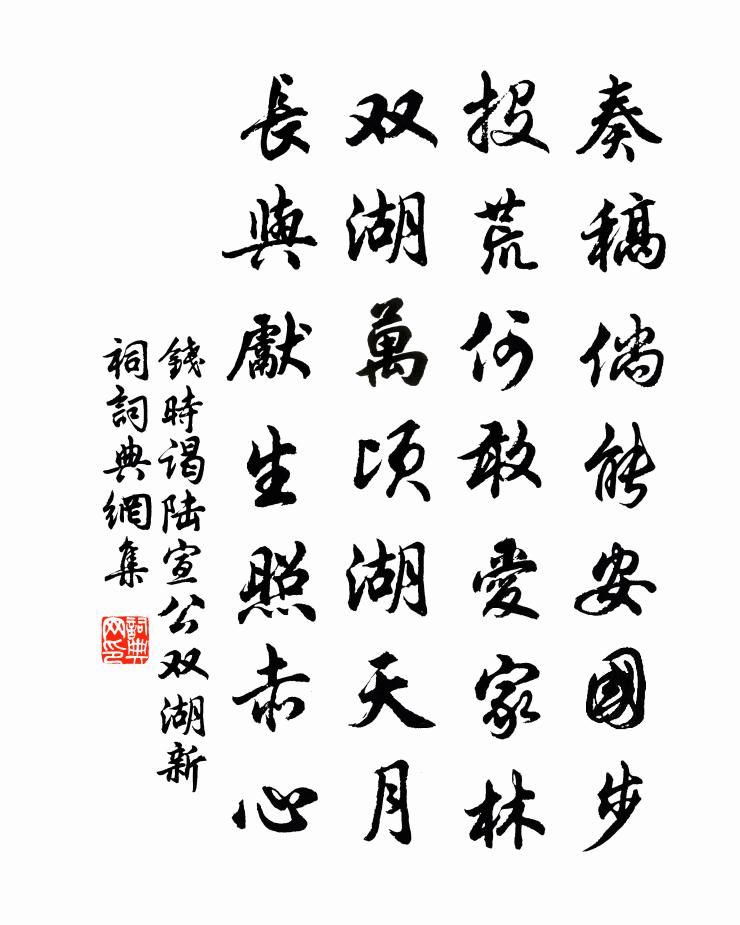 奏稿倘能安國步
投荒何敢愛家林
双湖萬顷湖天月
長與獻生照赤心
錢時谒陆宣公双湖新
祠詞典網集
詞典
网印